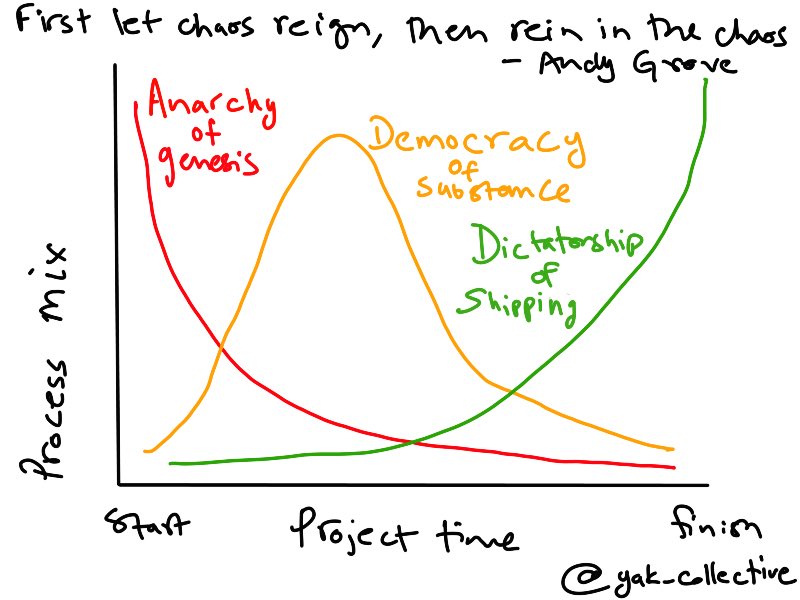 First let chaos reign, then rein in the chaos
- Andy Grove
Anarchy
of
genesis
Democracy
of
substance
Dictatorship
of
Shipping
Process mix
Start
Project time
finish
@yak_collective